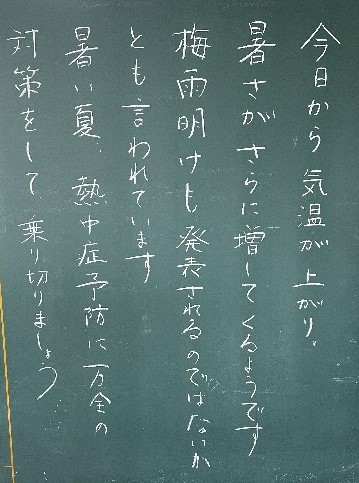 今日から気温が上がり、
暑さがさらに増してくるようです
梅雨明けも発表されるのではないか
とも言われています
暑い夏、熱中症予防に万全の
対策をして乗り切りましょう